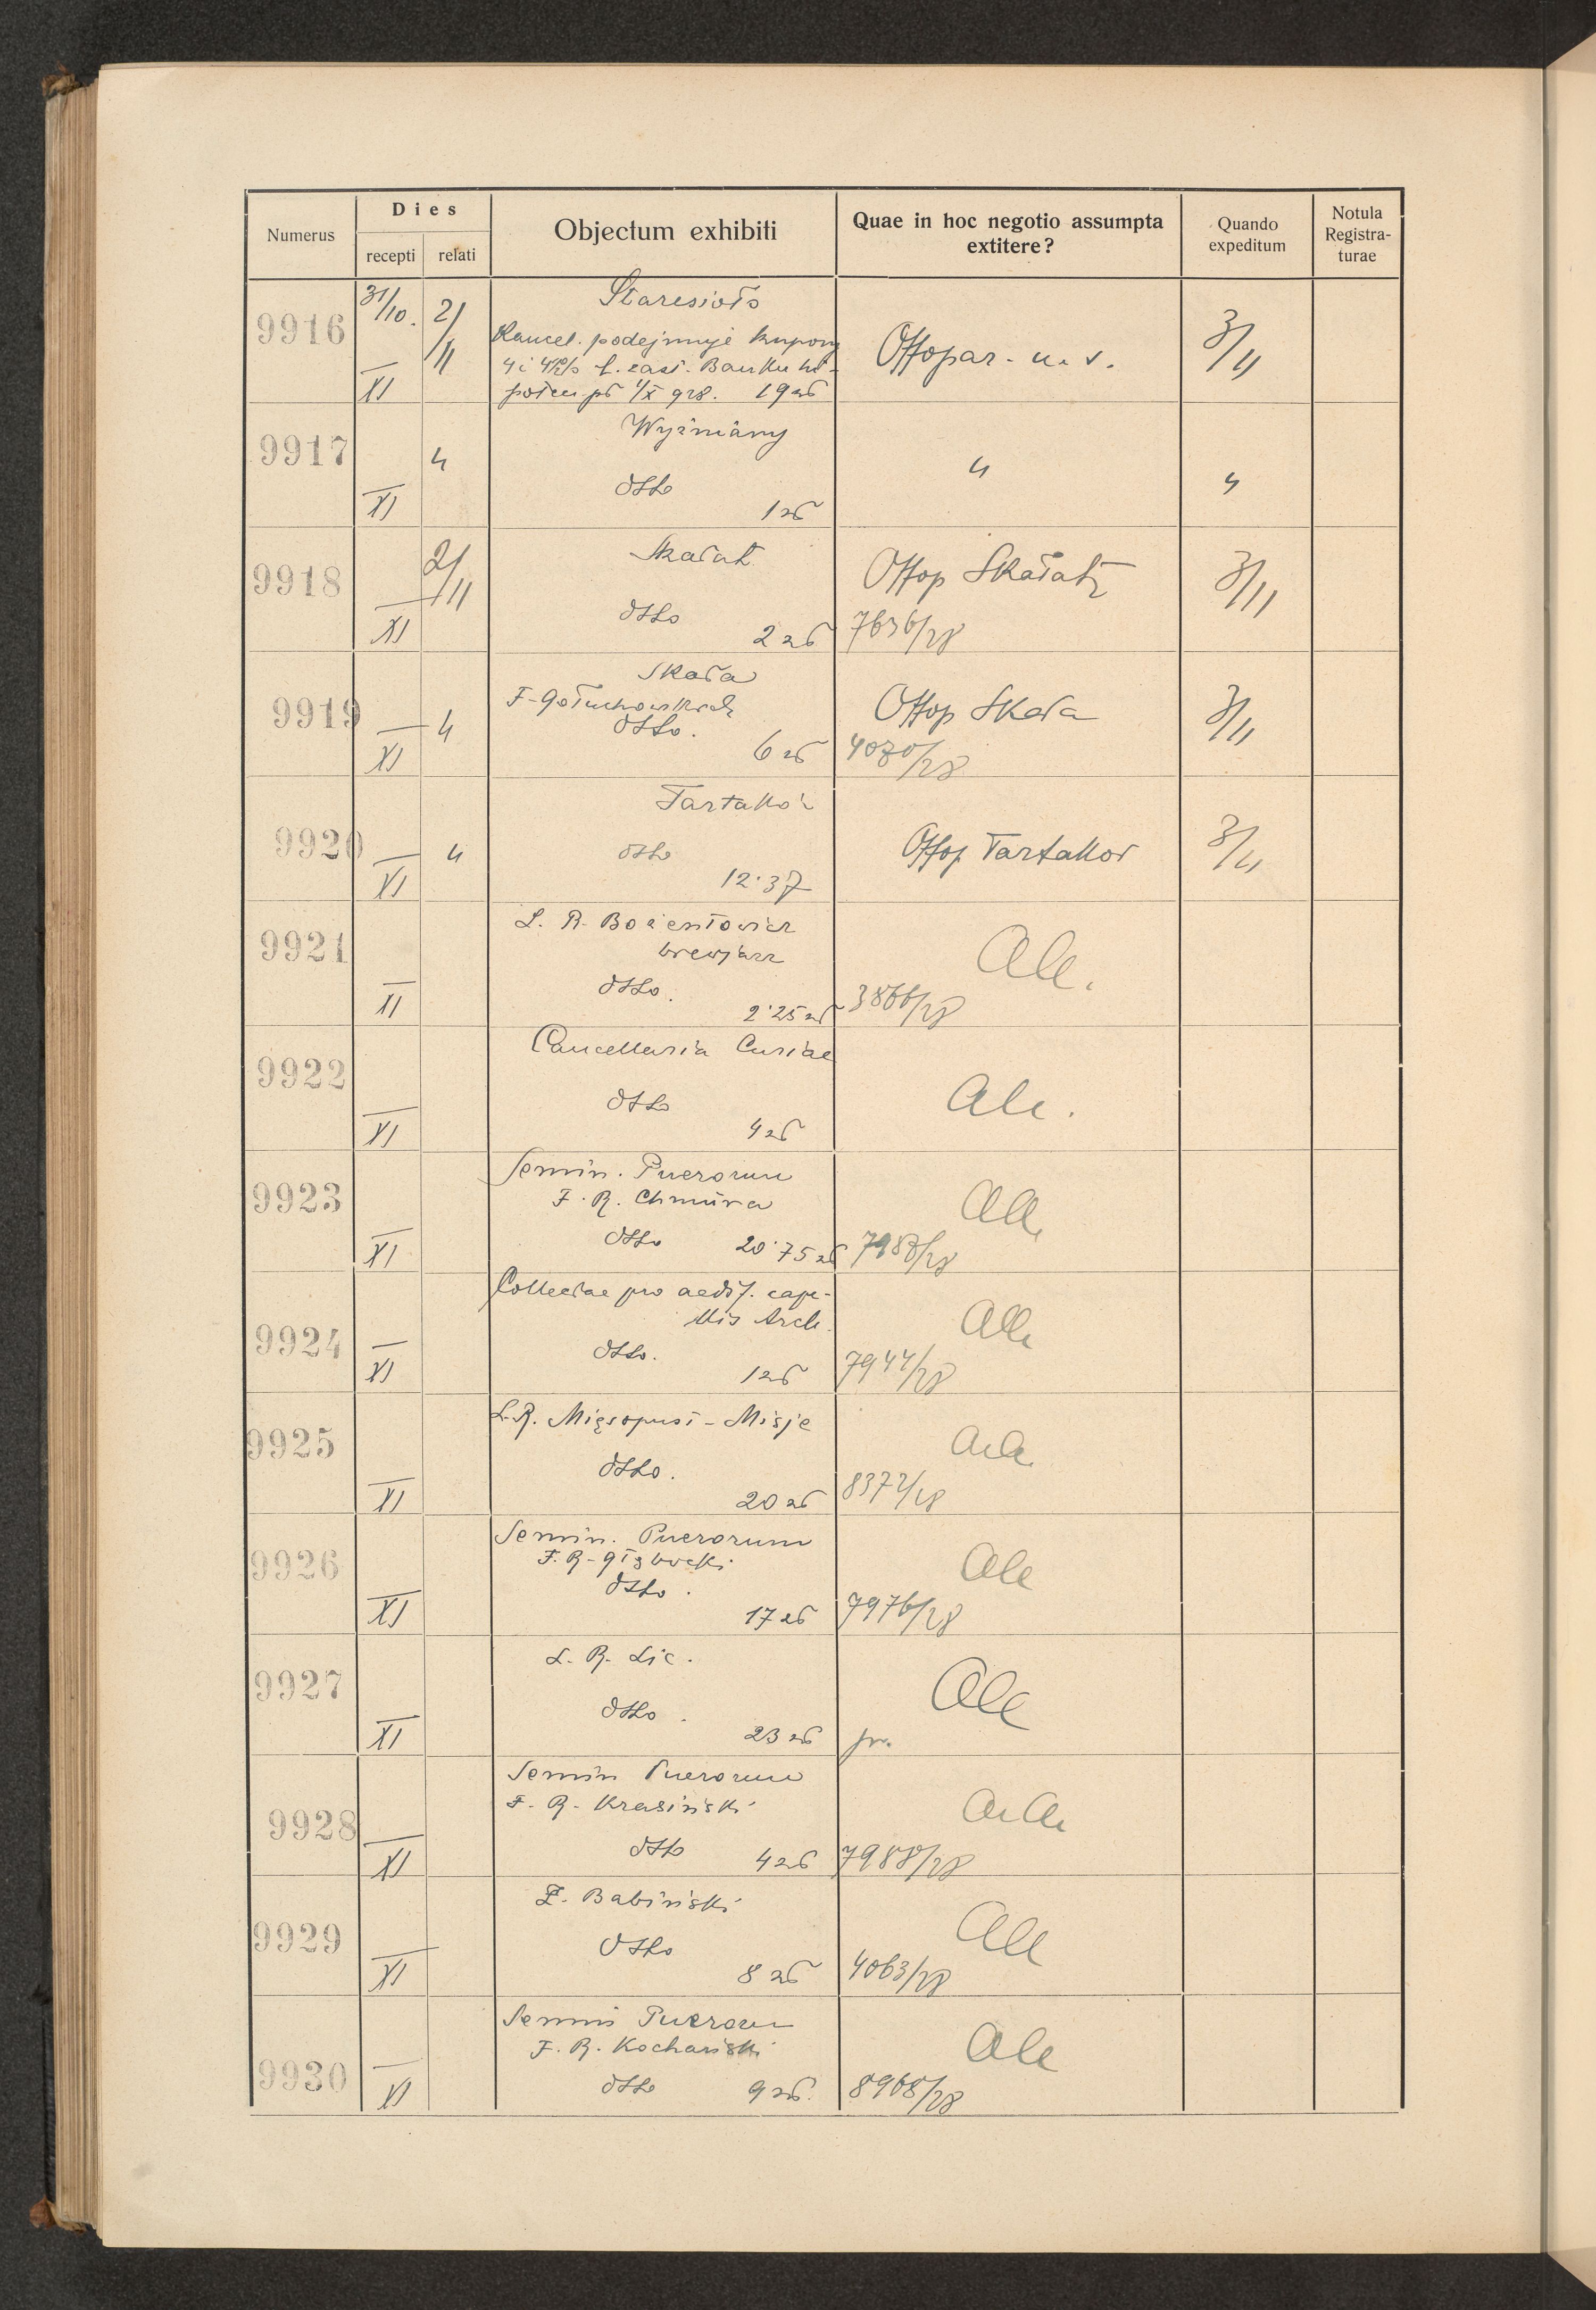 Numerus
Dies
recepti
relati
Objectum exhibiti
Quae in hoc negotio assumpta
extitere?
Quando
expeditum
Notula
Registra-
turae
9916
31/10.
XI
2/11
Staresioło
Kancel. podejmuje kupony
4 i 4½% l. zast. Banku hi-
potecz. po 1/X 928. 19 zł
Offopar. u. s.
3/11
9917
XI
"
Wyżniany
dtto
1 zł
"
"
9918
XI
2/11
Skałat
dtto
2 zł
Offop Skałat
7636/28
3/11
9919
XI
"
Skała
F. Gołuchowskich
dtto.
6 zł
Offop Skała
4080/28
3/11
9920
XI
"
Tartaków
dtto
12.37
Offop Tartakow
3/11
9921
XI
L. R. Bożentowicz
brewjarz
dtto.
2.25 zł
Alle.
3866/28
9922
XI
Cancellaria Curiae
dtto
4 zł
Alle.
9923
XI
Semin. Puerorum
F. R. Chmura
dtto 20.75 zł
Alle
7987/28
9924
XI
Collectae pro aedif. cape-
llis Arch.
dtto.
1 zł
Alle
7944/28
9925
XI
L. R. Mięsopust - Misje
dtto.
20 zł
Alle
8372/28
9926
XI
Semin. Puerorum
F. R. Głębocki
dtto.
17 zł
Alle
7976/28
9927
XI
L. R. Lic.
dtto.
23 zł
Alle
pr.
9928
XI
Semin Puerorum
F. R. Krasiński
dtto
4 zł
Alle
7988/28
9929
XI
F. Babiński
dtto
8 zł
Alle
4063/28
9930
XI
Semin Puerorum
F. R. Kochański
dtto 9 zł.
Alle
8968/28